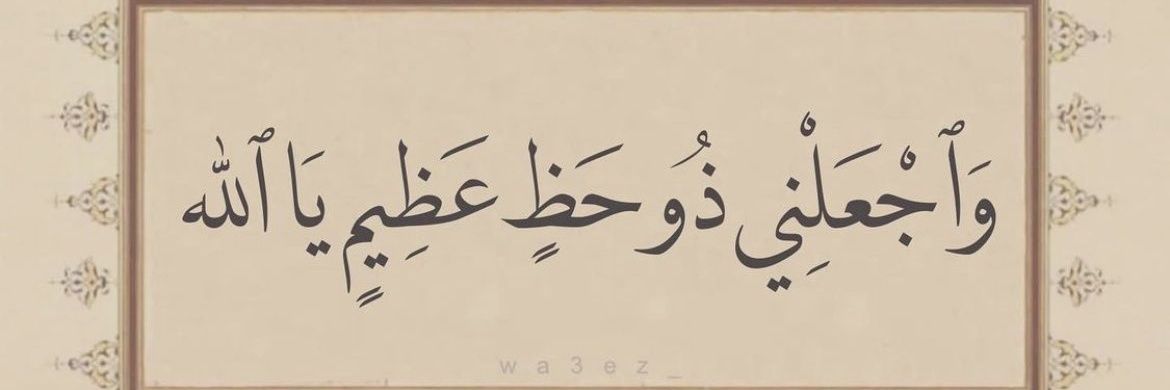 وَٱجْعَلْنِي ذُو حَظٍ عَظِيمٍ يَا ٱللّٰه
wa3ez_